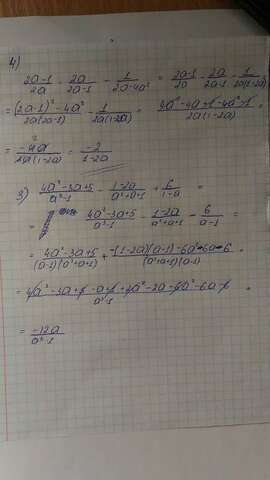 4)
2a-1/2a - 2a/2a-1 - 1/2a-4a² = 2a-1/2a - 2a/2a-1 - 1/2a(1-2a) =
= (2a-1)²-4a²/2a(2a-1) - 1/2a(1-2a) = 4a²-4a+1-4a²+1/2a(1-2a)
= -4a/2a(1-2a) = -2/1-2a
3) 4a²-3a+5/a³-1 - 1-2a/a²+a+1 + 6/1-a =
= 4a²-3a+5/a³-1 - 1-2a/a²+a+1 - 6/a-1 =
= 4a²-3a+5/(a-1)(a²+a+1) + -(1-2a)(a-1)-6a²-6a-6/(a²+a+1)(a-1) =
= 4a²-3a+5-a+1+2a²-2a-6a²-6a-6/a³-1 =
= -12a/a³-1